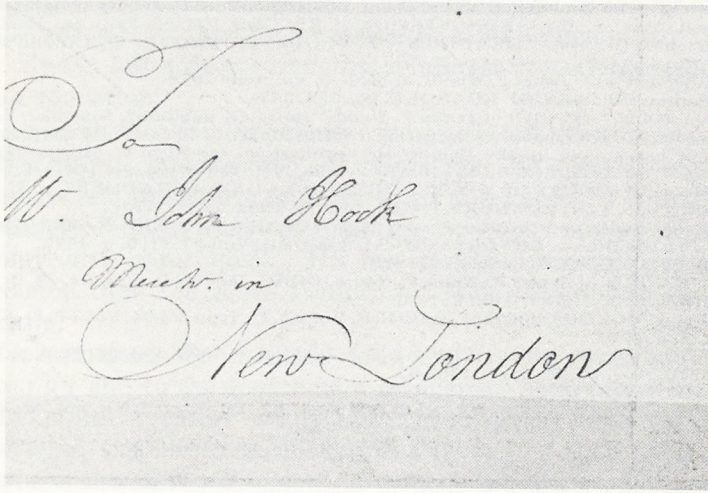 To
Mr. John Hook
Mercht. in
New London